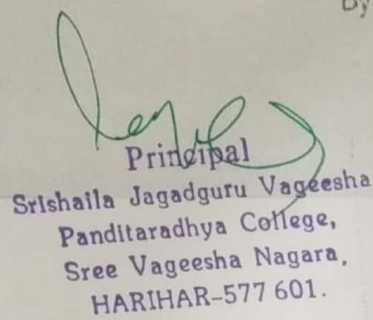 By
Principal
Srishaila Jagadguru Vageesha
Panditaradhya College,
Sree Vageesha Nagara,
HARIHAR-577 601.